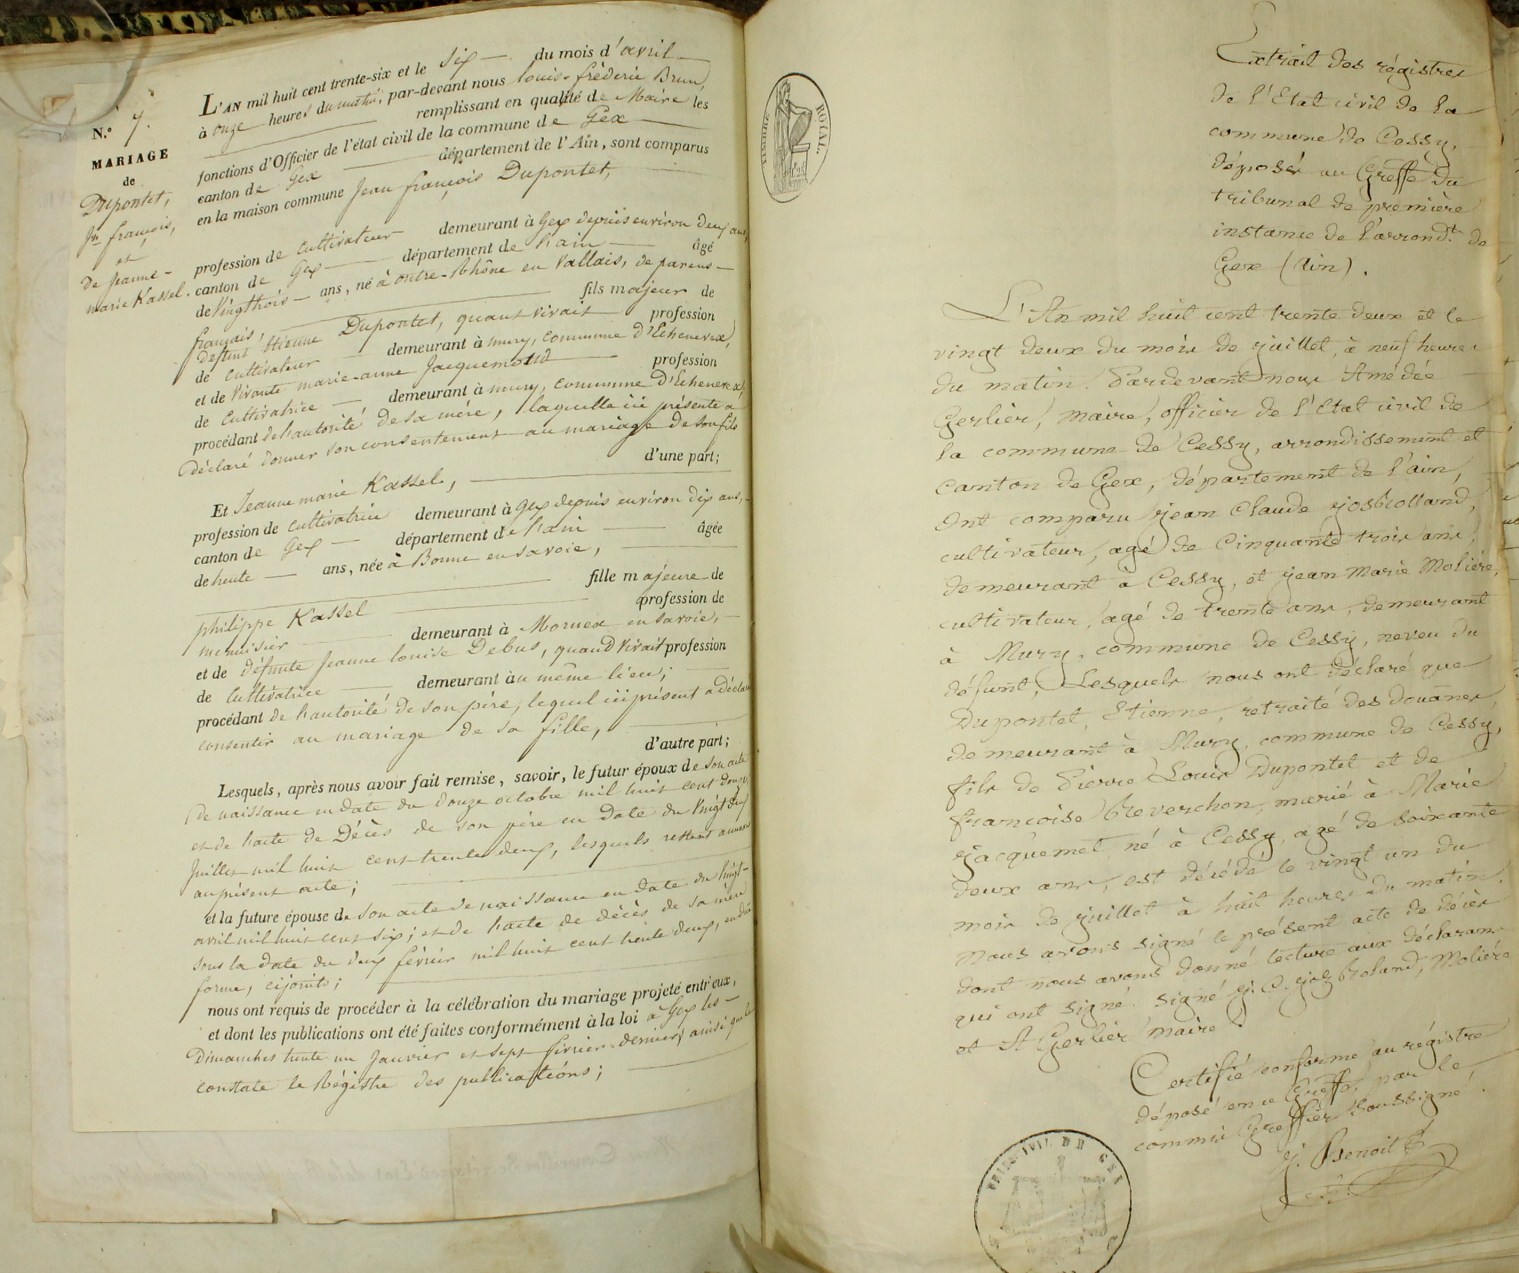 N.° 7.
MARIAGE
de
Dupontet,
Jn françois,
et
de jeanne-
marie Kassel.
L'AN mil huit cent trente-six et le Six du mois d'avril
à onze heures du matin, par-devant nous louis-fréderic Brun,
remplissant en qualité de Maire les
fonctions d'Officier de l'état civil de la commune de Gex
canton de Gex département de l'Ain, sont comparus
en la maison commune Jean françois Dupontet,
profession de cultivateur demeurant à Gex depuis environ deux ans,
canton de Gex département de l'ain âgé
de vingt trois ans, né à outre-Rhône en Vallais, de parens
français, fils majeur de
defunt Etienne Dupontet, quant vivait profession
de cultivateur demeurant à mury, commune d'Echenevex,
et de vivante marie-anne Jacquemoud profession
de cultivatrice demeurant à mury, commune d'Echenevex,
procédant de l'autorité de sa mère, laquelle ici présente a
déclaré donner son consentement au mariage de son fils
d'une part;
Et Jeanne marie Kassel,
profession de cultivatrice demeurant à Gex depuis environ dix ans,
canton de Gex département de l'ain âgée
de trente ans, née à Bonne en savoie,
fille majeure de
philippe Kassel profession de
menuisier demeurant à Mornex en savoie,
et de défunte Jeanne louise Debus, quand vivait profession
de cultivatrice demeurant au même lieu;
procédant de l'autorité de son père, lequel ici présent a déclaré
consentir au mariage de sa fille,
d'autre part;
Lesquels, après nous avoir fait remise, savoir, le futur époux de son acte
de naissance en date du douze octobre mil huit cent douze,
et de l'acte de Décès de son père en date du vingt deux
juillet mil huit cent trente deux, lesquels restent annexés
au présent acte;
et la future épouse de son acte de naissance en date du vingt-
avril mil huit cent six; et de l'acte de décès de sa mère
sous la date du deux février mil huit cent trente deux, en due
forme, cijoints;
nous ont requis de procéder à la célébration du mariage projeté entr'eux,
et dont les publications ont été faites conformément à la loi à Gex les
Dimanches trente un Janvier et sept février derniers ainsi que le
constate le Régistre des publications;
TIMBRE ROYAL.
Extrait des régistres
de l'Etat civil de la
commune de Cessy,
déposé au Greffe du
tribunal de première
instance de l'arrond.t de
Gex (Ain).
L'An mil huit cent trente deux et le
vingt deux du mois de juillet, à neuf heures
du matin. Pardevant nous Amédée
Gerlier, maire, officier de l'Etat civil de
la commune de Cessy, arrondissement et
canton de Gex, département de l'ain,
Ont comparu jean Claude josbrolland,
cultivateur, agé de Cinquante trois ans,
demeurant à Cessy, et jean Marie Molière,
cultivateur, agé de trente ans, demeurant
à Mury, commune de Cessy, neveu du
défunt, Lesquels nous ont déclaré que
Dupontet, Etienne, retraité des douanes,
demeurant à Mury, commune de Cessy,
fils de Pierre Louis Dupontet et de
françoise Breverchon, marié à Marie
jacquemet, né à Cessy, agé de soixante
deux ans, est décédé le vingt un du
mois de juillet à huit heures du matin.
Nous avons signé le présent acte de décès
dont nous avons donné lecture aux déclarans
qui ont signé. Signé j. C. josbroland, Molière
et A Gerlier maire.
Certifié conforme au régistre
déposé en ce Greffe, par le
commis Greffier soussigné.
j. Benoit
CIVIL DE GEX